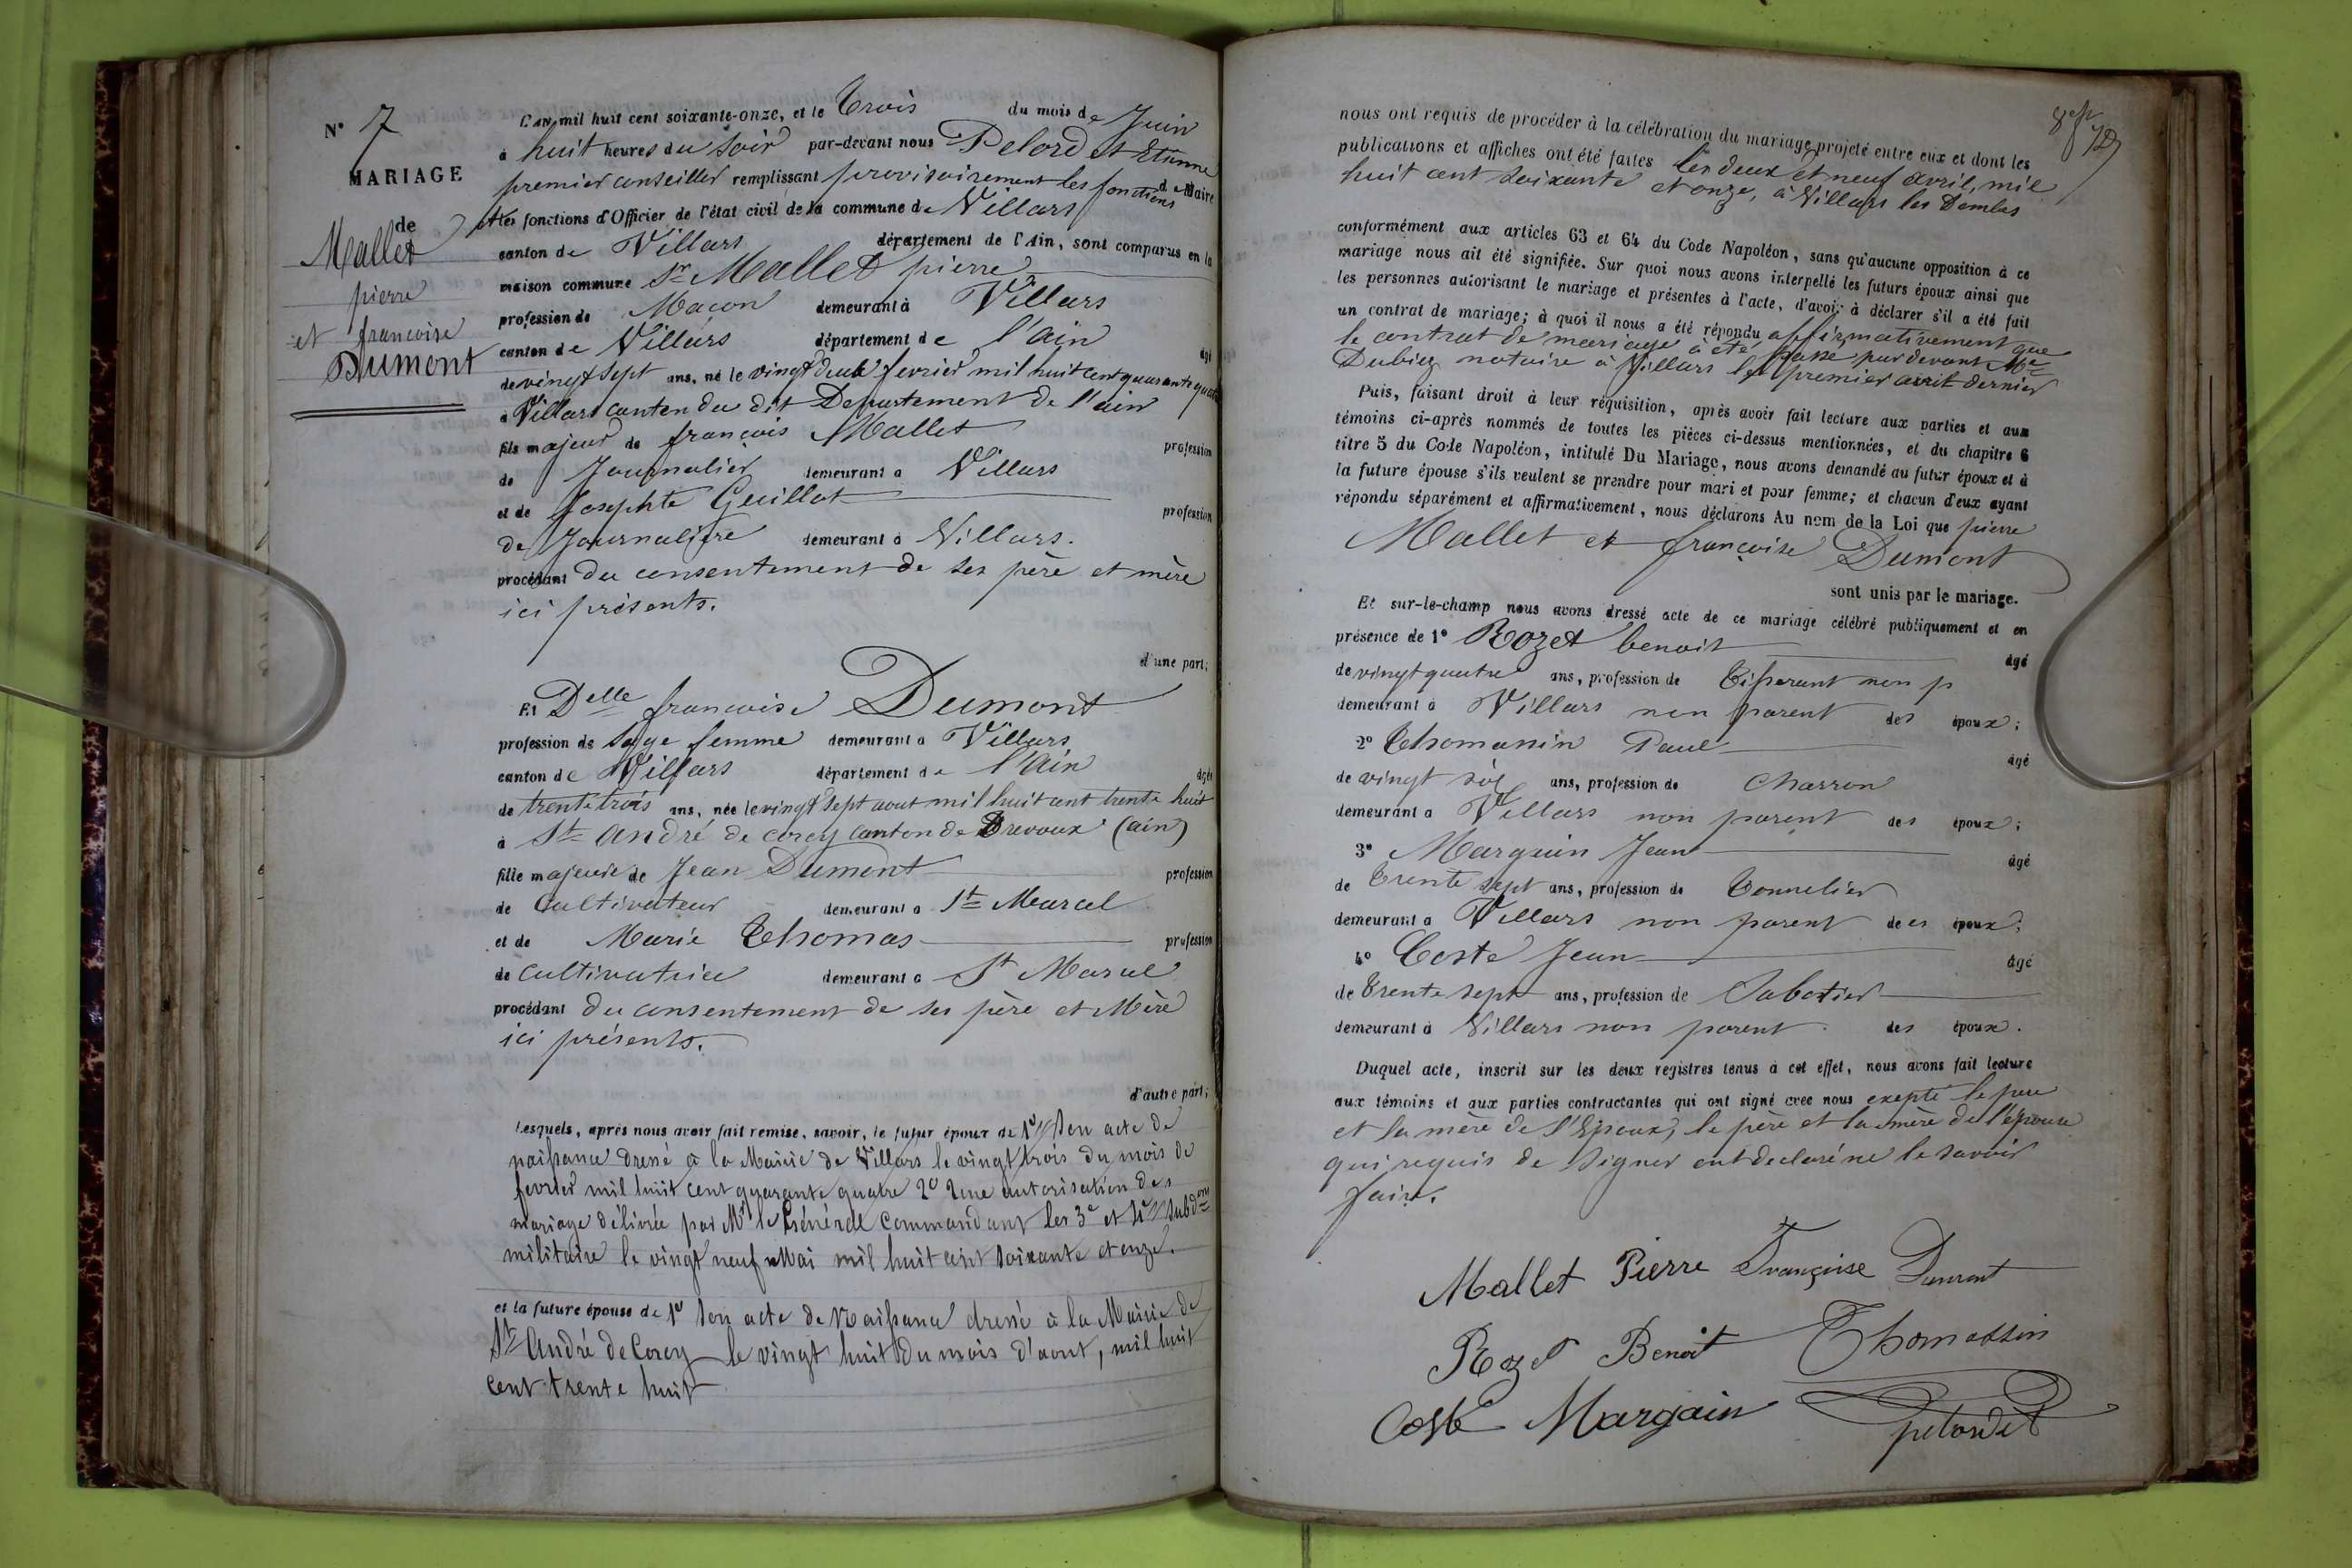 N° 7
MARIAGE
de
Mallet
pierre
et françoise
Dumont
L'an mil huit cent soixante-onze, et le Trois du mois de Juin
à huit heures du soir par-devant nous Pelordet Etienne
premier conseiller remplissant provisoirement les fonctions de Maire
et les fonctions d'Officier de l'état civil de la commune de Villars
canton de Villars département de l'Ain, sont comparus en la
maison commune Sr Mallet pierre
profession de Macon demeurant à Villars
canton de Villars département de l'ain âgé
de vingt sept ans, né le vingt deux fevrier mil huit cent quarante quatre
à Villars canton du dit Departement de l'ain
fils majeur de françois Mallet profession
de Journalier demeurant à Villars
et de Josephte Guillot profession
de Journalière demeurant à Villars.
procédant du consentement de ses père et mère
ici présents.
d'une part;
Et Delle françoise Dumont
profession de sage femme demeurant à Villars
canton de Villars département de l'Ain âgée
de trente trois ans, née le vingt sept aout mil huit cent trente huit
à St André de corcy canton de Trevoux (ain)
fille majeure de Jean Dumont profession
de Cultivateur demeurant à St Marcel
et de Marie Thomas profession
de cultivatrice demeurant à St Marcel
procédant du consentement de ses père et Mère
ici présents.
d'autre part;
Lesquels, après nous avoir fait remise, savoir, le futur époux de 1° son acte de
naissance dressé à la Mairie de Villars le vingt trois du mois de
fevrier mil huit cent quarante quatre 2° d'une autorisation de
mariage délivrée par Mr le Général Commandant les 3e et 4e subdons
militaire le vingt neuf Mai mil huit cent soixante et onze.
et la future épouse de 1° son acte de Naissance dressé à la Mairie de
St André de Corcy le vingt huit du mois d'aout, mil huit
cent trente huit
nous ont requis de procéder à la célébration du mariage projeté entre eux et dont les
publications et affiches ont été faites les deux et neuf avril, mil
huit cent soixante et onze, à Villars les Dombes
conformément aux articles 63 et 64 du Code Napoléon, sans qu'aucune opposition à ce
mariage nous ait été signifiée. Sur quoi nous avons interpellé les futurs époux ainsi que
les personnes autorisant le mariage et présentes à l'acte, d'avoir à déclarer s'il a été fait
un contrat de mariage; à quoi il nous a été répondu affirmativement que
le contrat de mariage à été passé par devant Me
Dubiez notaire à Villars le premier avril dernier
Puis, faisant droit à leur réquisition, après avoir fait lecture aux parties et aux
témoins ci-après nommés de toutes les pièces ci-dessus mentionnées, et du chapitre 6
titre 5 du Code Napoléon, intitulé Du Mariage, nous avons demandé au futur époux et à
la future épouse s'ils veulent se prendre pour mari et pour femme; et chacun d'eux ayant
répondu séparément et affirmativement, nous déclarons Au nom de la Loi que pierre
Mallet et françoise Dumont
sont unis par le mariage.
Et sur-le-champ nous avons dressé acte de ce mariage célébré publiquement et en
présence de 1° Rozet benoit âgé
de vingt quatre ans, profession de Tisserant non p
demeurant à Villars non parent des époux;
2° Thomassin Paul âgé
de vingt six ans, profession de Charron
demeurant à Villars non parent des époux;
3° Margain Jean âgé
de Trente sept ans, profession de Tonnelier
demeurant à Villars non parent des époux;
4° Coste Jean âgé
de Trente sept ans, profession de Sabotier
demeurant à Villars non parent des époux.
Duquel acte, inscrit sur les deux registres tenus à cet effet, nous avons fait lecture
aux témoins et aux parties contractantes qui ont signé avec nous exepté le père
et la mère de l'Epoux, le père et la mère de l'épouse
qui requis de signer ont declaré ne le savoir
faire.
Mallet Pierre Françoise Dumont
Rozet Benoit Thomassin
Coste Margain pelordet